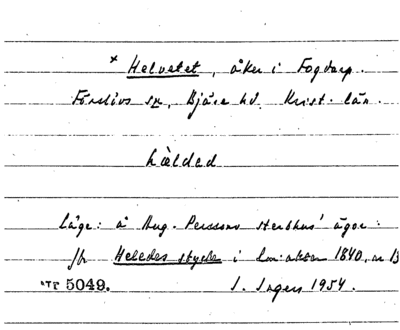 × Helvetet, åker i Fogdarp.
Förslövs sn, Bjäre hd. Krist. län.
hæ̀ldad
läge: å Aug. Perssons sterbhus' ägor.
jfr Heledes stycke i lm:akten 1840, nr 13
5049. 1954.